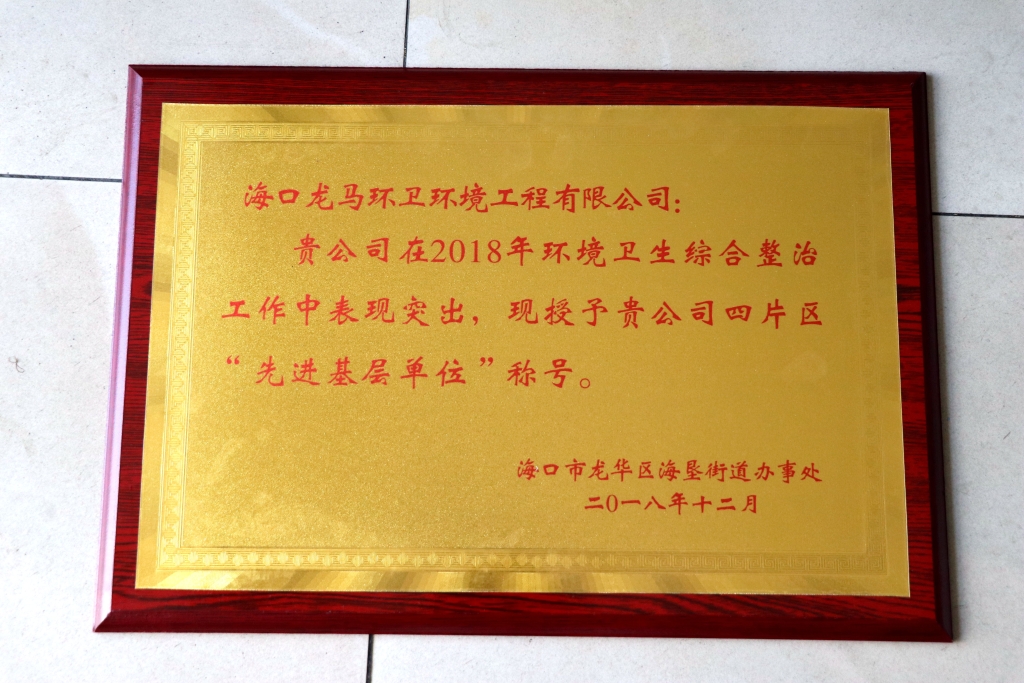 海口龙马环卫环境工程有限公司：
贵公司在2018年环境卫生综合整治
工作中表现突出，现授予贵公司四片区
“先进基层单位”称号。
海口市龙华区海垦街道办事处
二0一八年十二月